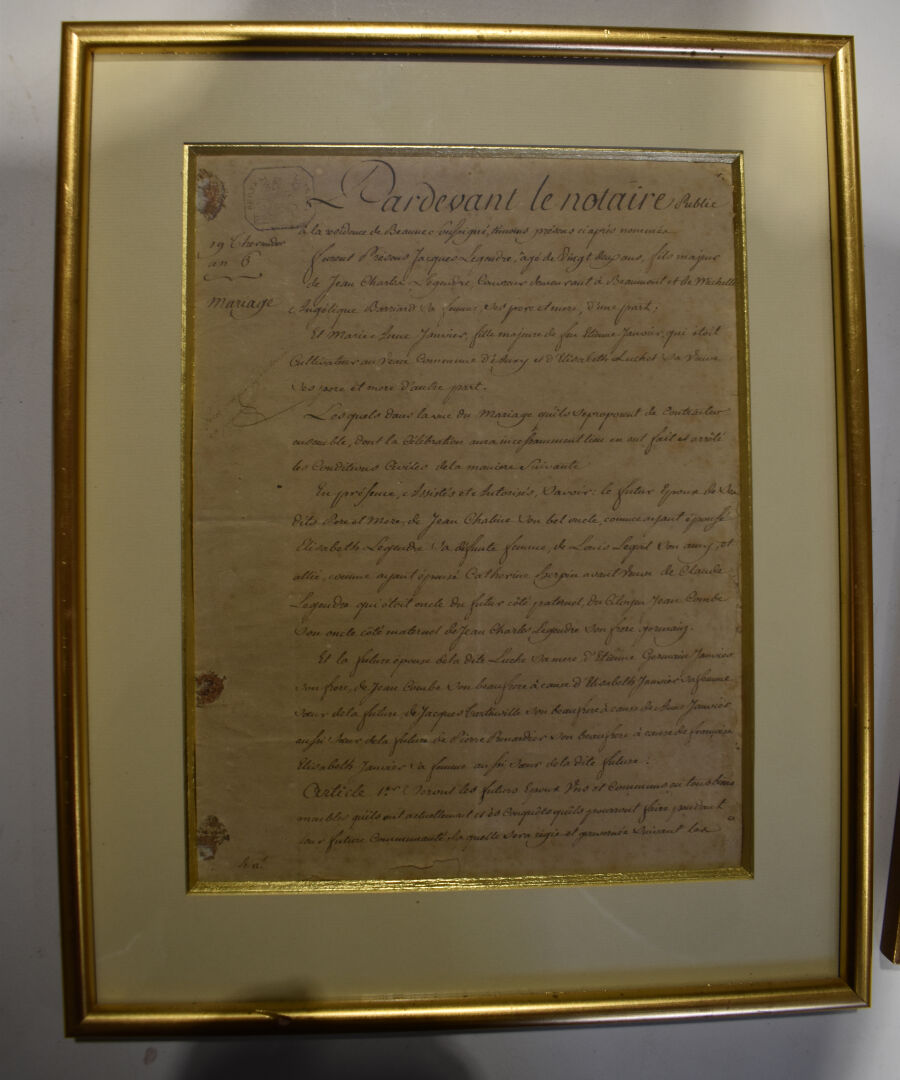 Pardevant le notaire Public
à la residence de Beaune soussigné, témoins présens ci après nommés
19 Thermidor
an 6
Mariage
furent Présens Jacques Legendre, agé de Vingt ans, fils majeur
de Jean Charles Legendre, demeurant à Beaumont et de Michelle
Angélique Barriard Sa femme Ses pere et mere, d'une part.
Et Marie Anne Janvier, fille majeure de feu Etienne Janvier, qui étoit
Cultivateur au Commune d' et d'Elisabeth Luchet Sa Veuve
Ses pere et mere d'autre part.
Lesquels dans la vue du Mariage qu'ils Se proposent de Contracter
ensemble, dont la Célébration aura incessamment lieu en ont fait et arrêté
les Conditions Civiles de la maniere Suivante
En présence, Assistés et Autorisés, Savoir: le futur Epoux de Ses
dits Pere et Mere, de Jean Chatine Son bel oncle, comme ayant épousé
Elisabeth Legendre Sa défunte femme, de Louis Legoit Son amy, et
allié, comme ayant épousé Catherine avant Veuve de Claude
Legendre qui étoit oncle du futur côté paternel, du Citoyen Jean Combe
Son oncle côté maternel de Jean Charles Legendre Son frere germain.
Et la future épouse de la dite Luche Sa mere d'Etienne Germain Janvier
Son frere, de Jean Combe Son beaufrere à cause d'Elisabeth Janvier Sa femme
Sœur de la future, de Jacques Son beaufrere à cause de Anne Janvier
aussi Sœur de la future de Pierre Son beaufrere à cause de françoise
Elisabeth Janvier Sa femme aussi Sœur de la dite future.
Article 1er Seront les futurs Epoux Uns et Communs en tous biens
meubles qu'ils ont actuellement et és Conquêts qu'ils pourront faire pendant
leur future Communauté, la quelle Sera régie et gouvernée Suivant les